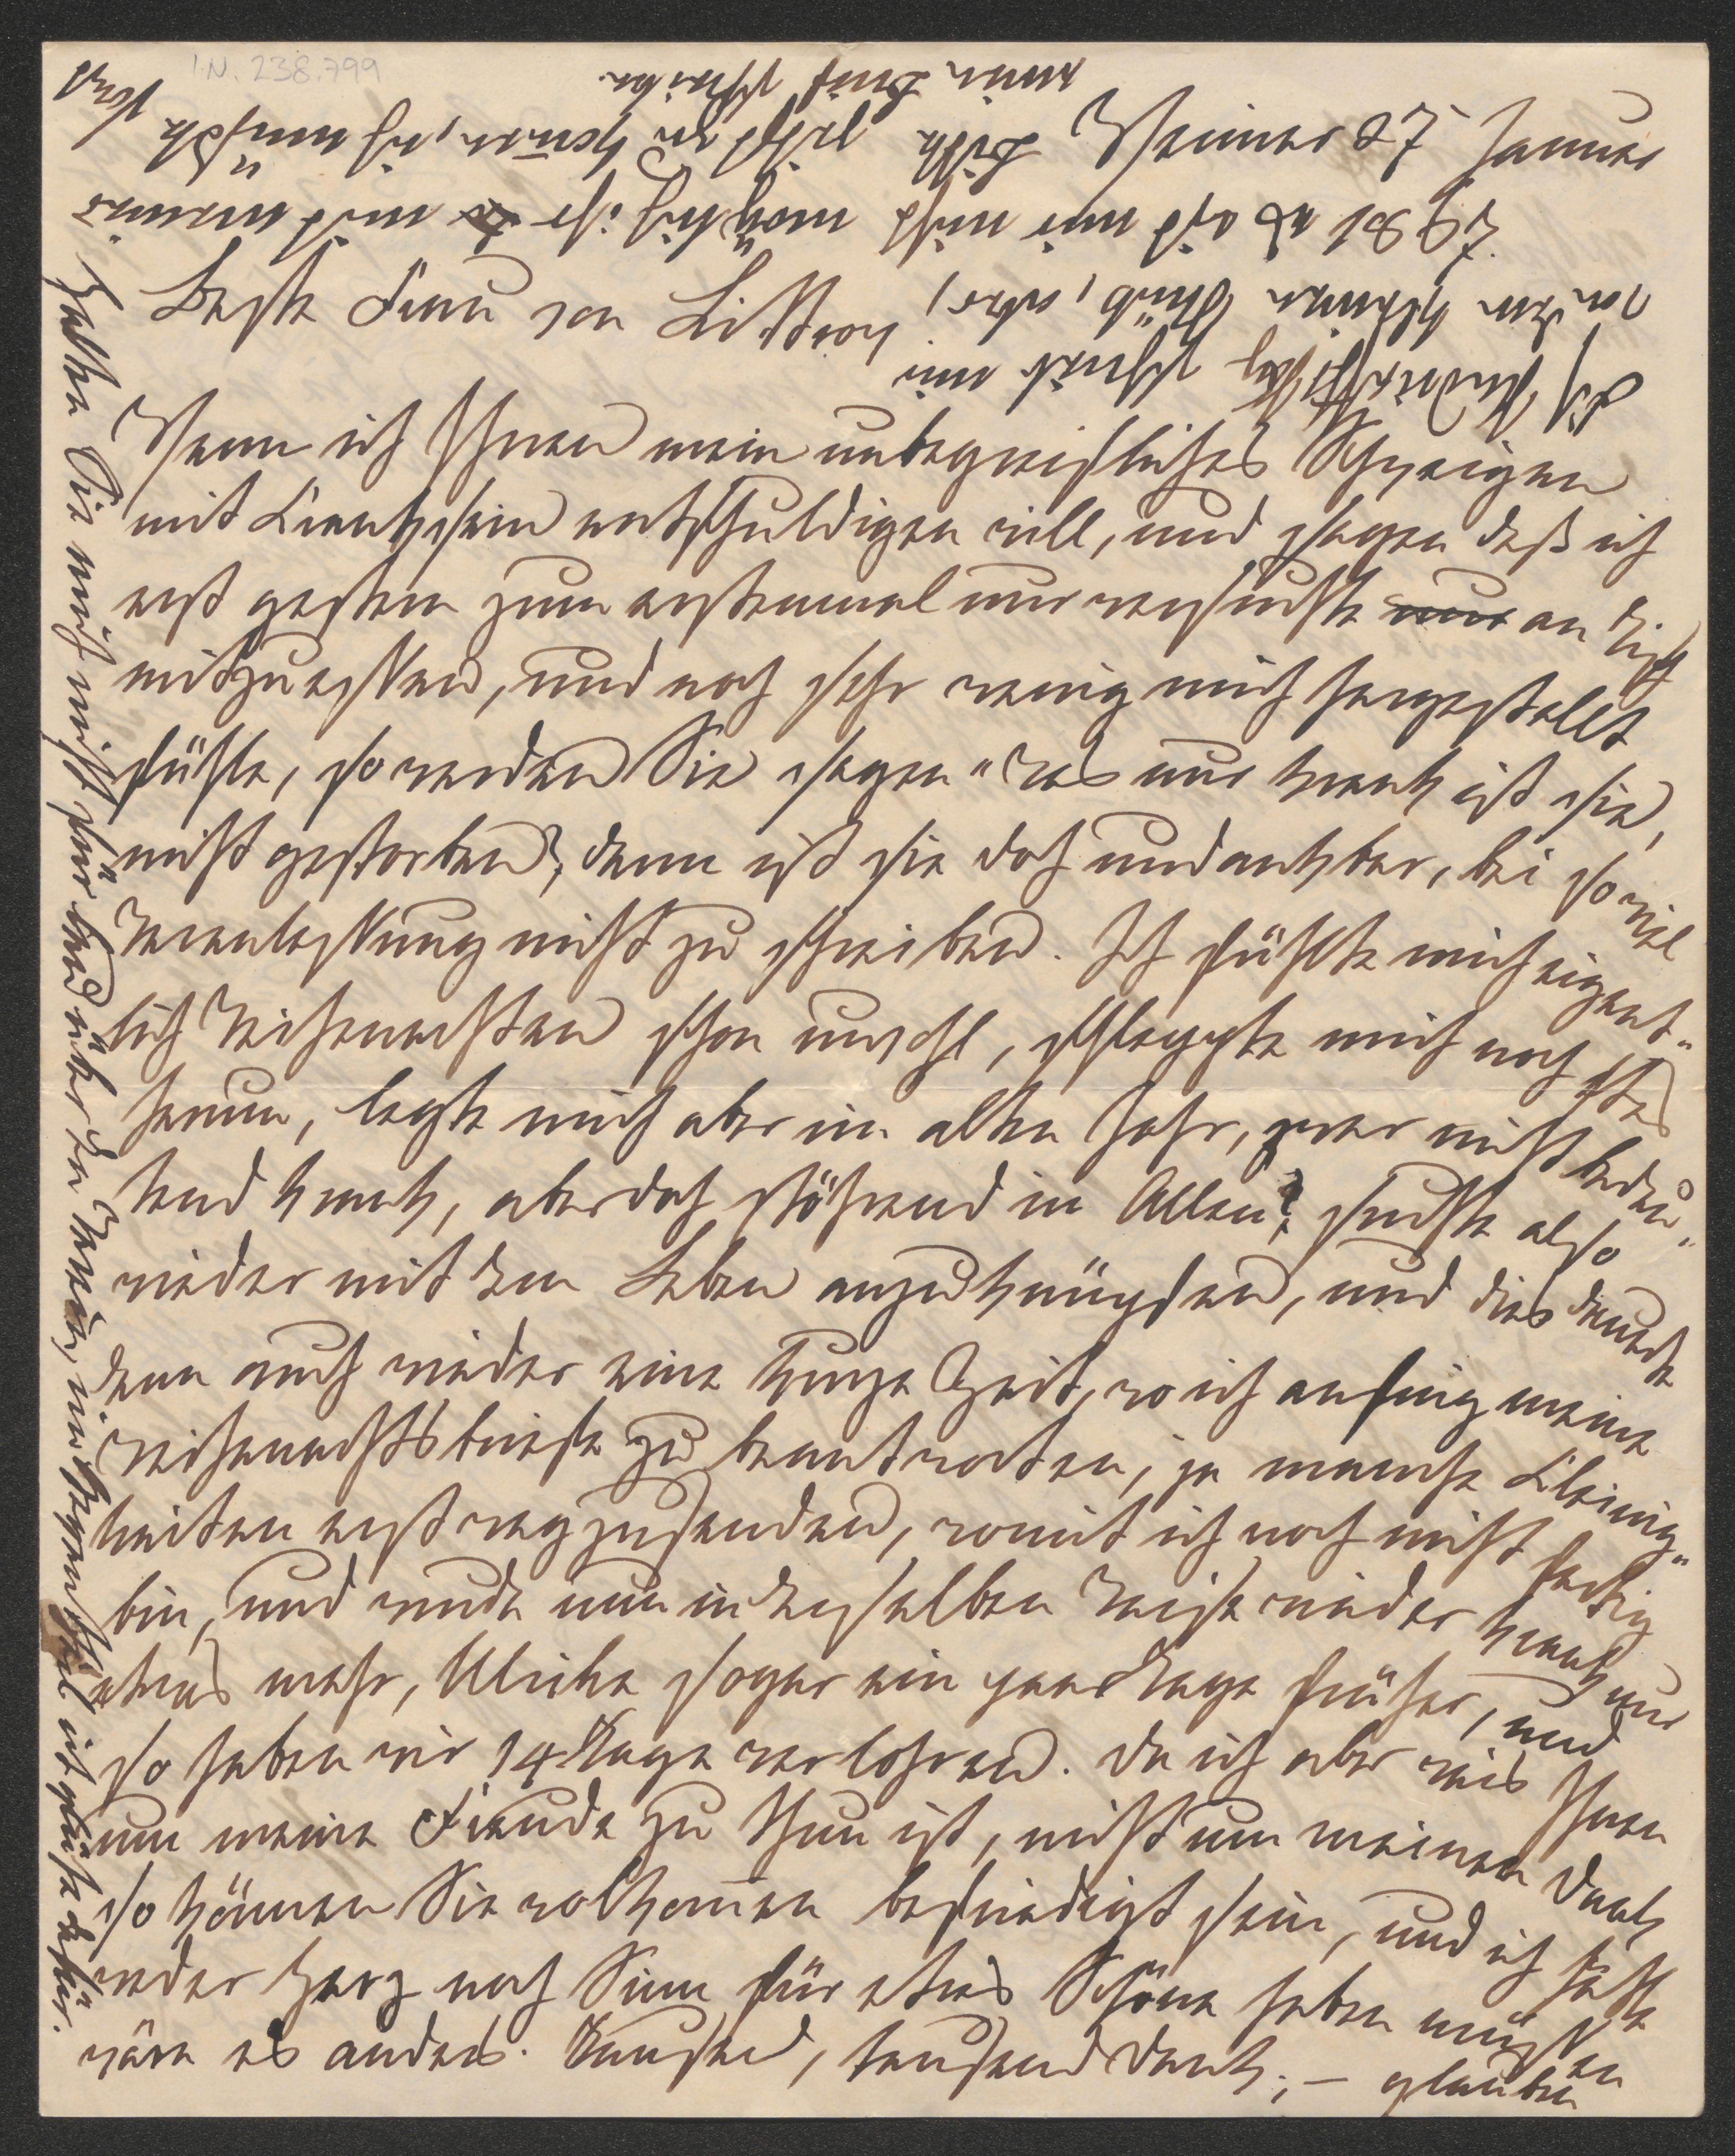 I.N. 238.799
Weimar 27 Januar
Beste Frau von Littrow
Wenn ich Ihnen mein unbegreifliches Schweigen
mit Krankhsein entschuldigen will, und sagen daß ich
erst gestern zum erstenmal nur versuchte nur an Tisch
mitzuessen, und noch sehr wenig mich hergestellt
fühle, so werden Sie sagen "was nur krank ist sie,
nicht gestorben, dann ist sie doch undankbar, bei so viel
Veranlassung nicht zu schreiben. Ich fühlte mich eigent"
lich Weihenachten schon unwohl, schleppte mich noch
herum, legte mich aber im alten Jahr, zwar nicht bedeu"
tend krank, aber doch stöhrend in Allen, suchte also
wieder mit dem Leben anzuknüpfen, und dies dauerte
denn auch wieder eine kurze Zeit, wo ich anfing meine
Weihenachtsbriefe zu beantworten, ja manche Kleinig"
keiten erst wegzusenden, womit ich noch nicht fertig
bin, und wurde nun in derselben Weise wieder krank nur
etwas mehr, Ulrike sogar ein paar Tage früher, und
so haben wir 14 Tage verlohren. Da ich aber weis Ihnen
um meine Freude zu thun ist, nicht um meinen Dank
so können Sie vollkomen befriedigt sein, und ich hätte
weder Herz noch Sinn für etwas Schöne haben müssen
wäre es anders. Tausend, tausend Dank, – glauben
Die schreib mir
von dem kleinen aber,
78 St es ist mir nicht möglich ihr mit meinen
Bitte zu komen, ich wünschte
mein Brief schreiben
halten Sie mich nicht für den im Gegentheil ich glühe dafür.